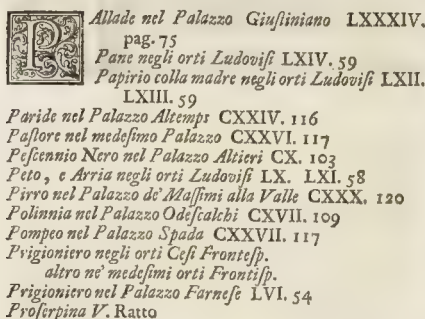 PAllade nel Palazzo Giuſtiniano LXXXIV.
pag. 75
Pane negli orti Ludoviſi LXIV. 59
Papirio colla madre negli orti Ludoviſi LXII.
LXIII. 59
Paride nel Palazzo Altemps CXXIV. 116
Paſtore nel medeſimo Palazzo CXXVI. 117
Peſcennio Nero nel Palazzo Altieri CX. 103
Peto, e Arria negli orti Ludoviſi LX. LXI. 58
Pirro nel Palazzo de' Maſſimi alla Valle CXXX. 120
Polinnia nel Palazzo Odeſcalchi CXVII. 109
Pompeo nel Palazzo Spada CXXVII. 117
Prigioniero negli orti Ceſi Fronteſp.
altro ne' medeſimi orti Frontiſp.
Prigioniero nel Palazzo Farneſe LVI. 54
Proſerpina V. Ratto